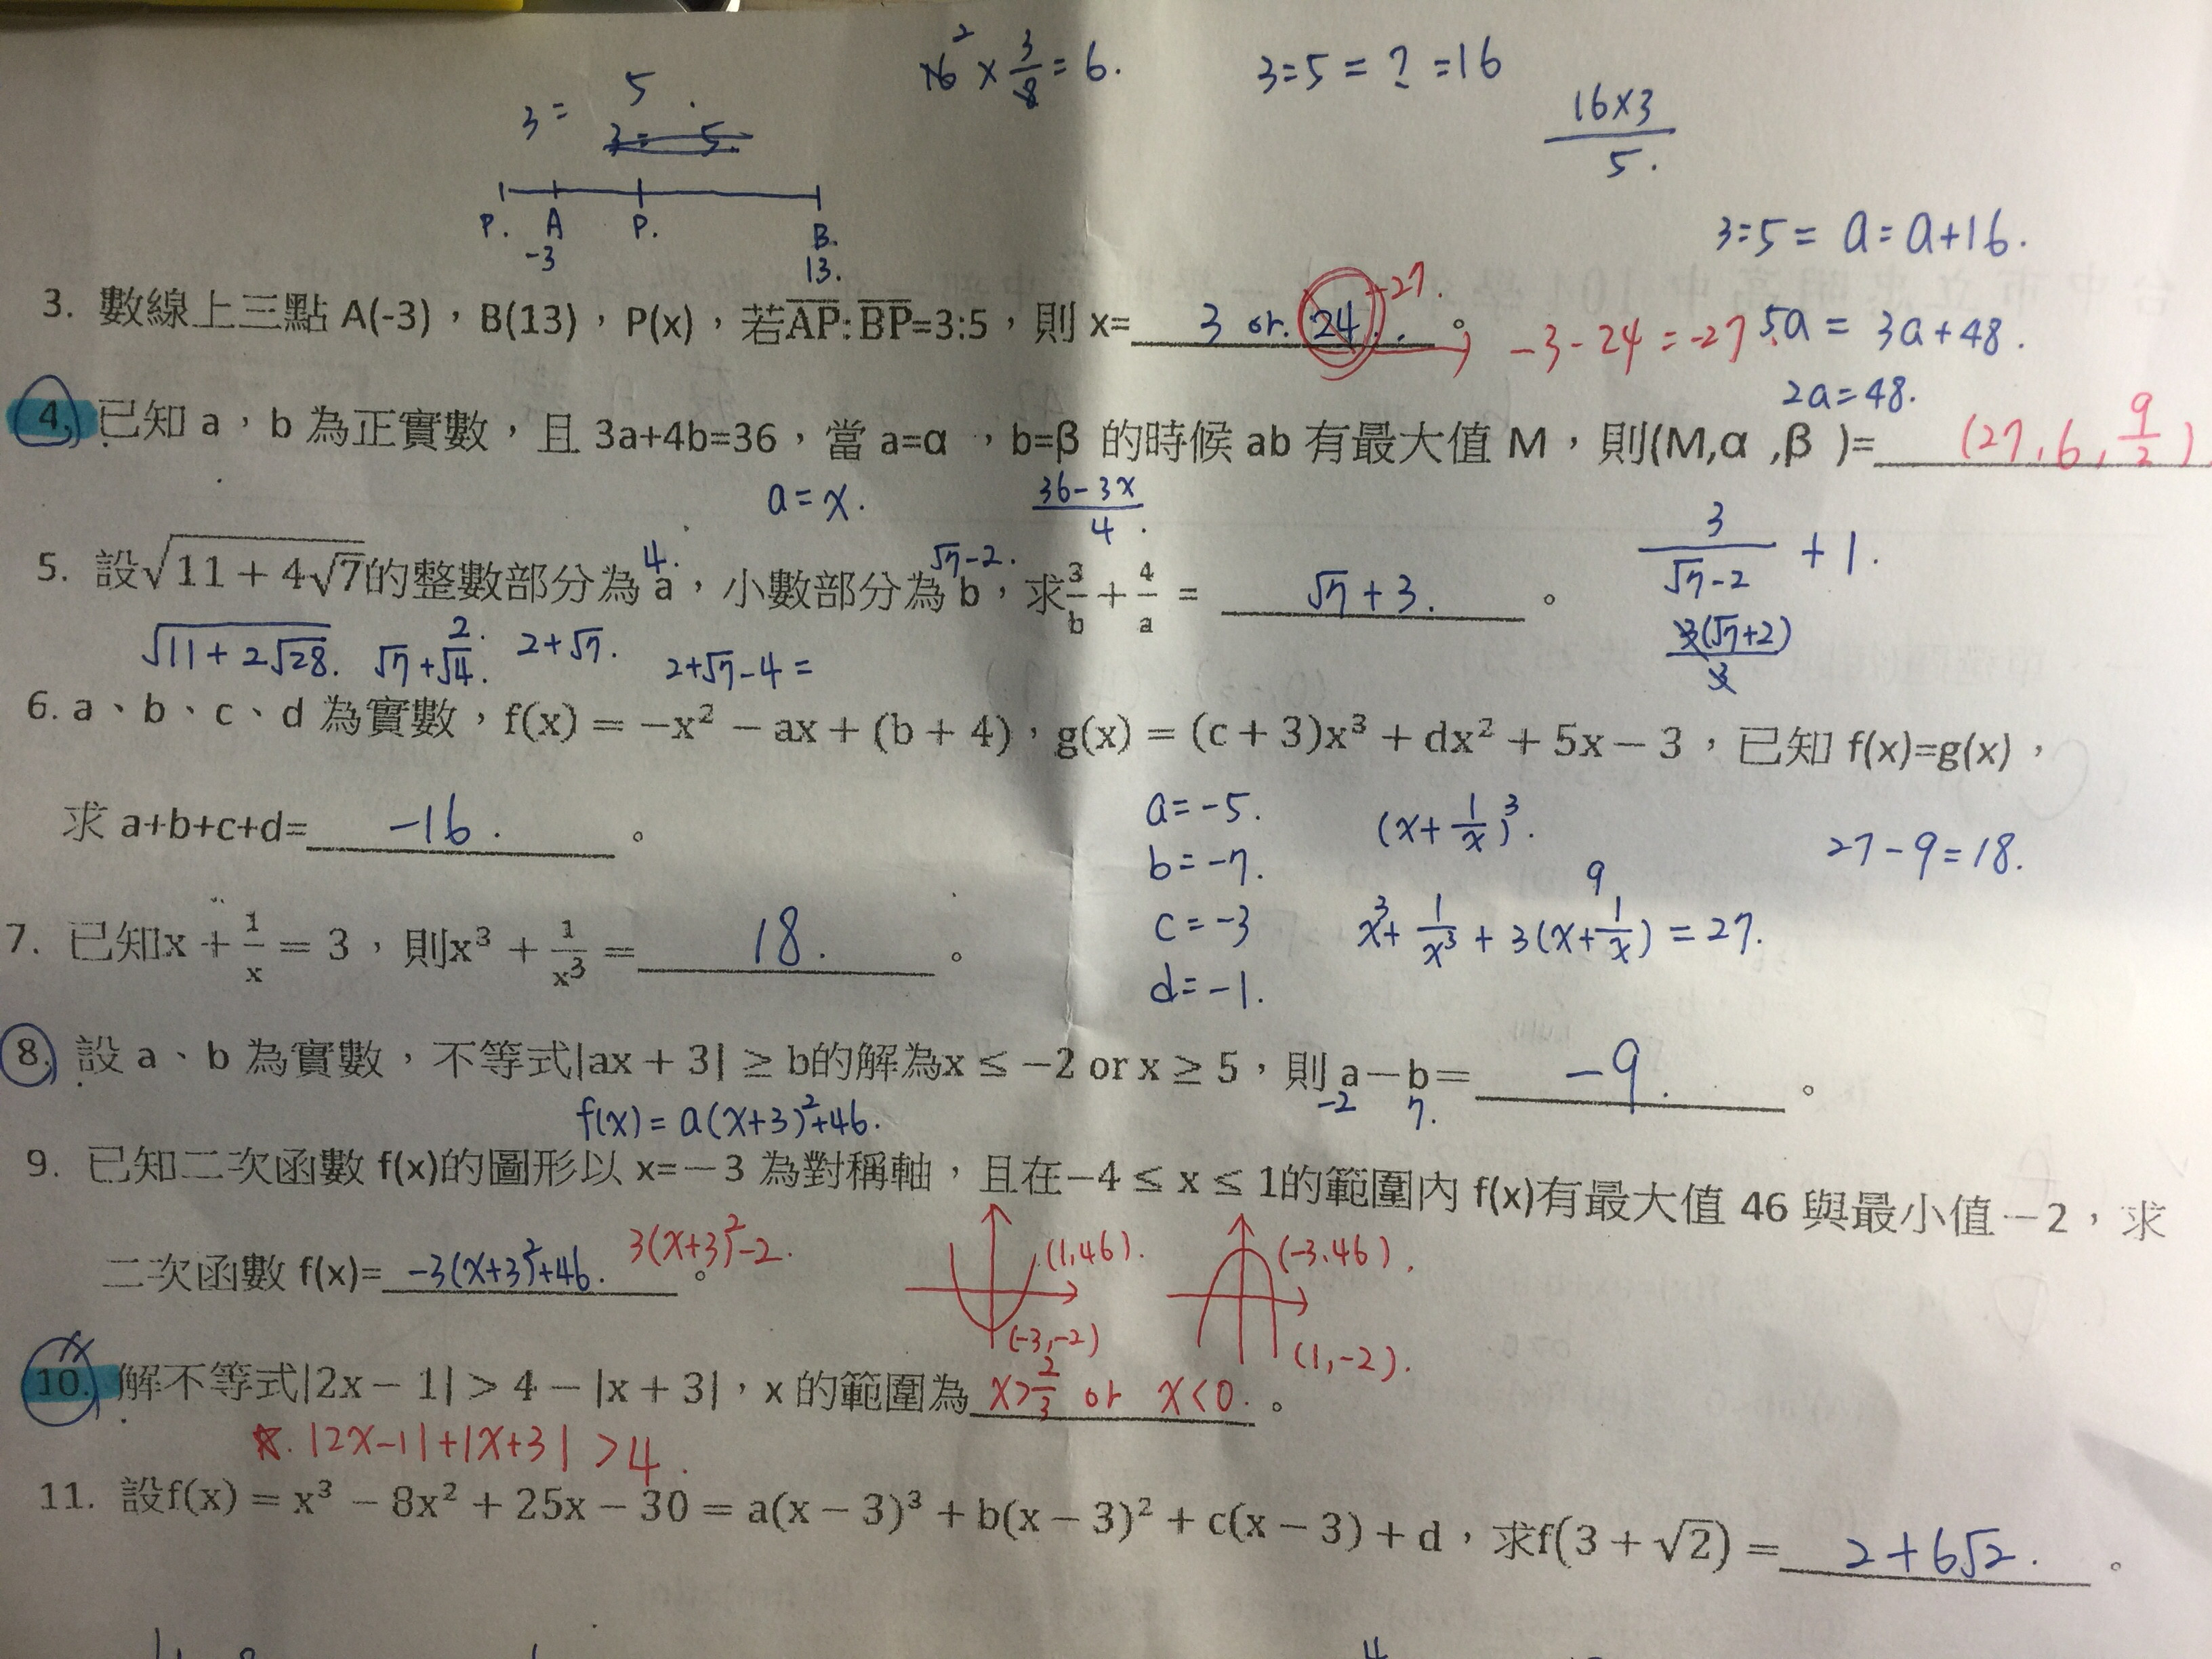 1̶6̶² × 3/8 = 6.
3:5 = ? :16
16×3/5.
3: 5.
P. A P. B.
-3 13.
3:5 = a:a+16.
3. 數線上三點 A(-3)，B(13)，P(x)，若AP:BP=3:5，則 x= 3 or. 24. 。 -27.
-3-24=-27
5a = 3a+48.
2a=48.
4. 已知 a，b 為正實數，且 3a+4b=36，當 a=α ，b=β 的時候 ab 有最大值 M，則(M,α ,β )= (27,6,9/2)
a=x. (36-3x)/4.
4. √7-2.
5. 設√(11 + 4√7)的整數部分為 a，小數部分為 b，求3/b + 4/a = √7+3. 。
3/(√7-2) +1.
3(√7+2)/3
√(11+2√28). √7+√4. 2. 2+√7. 2+√7-4=
6. a、b、c、d 為實數，f(x) = −x² − ax + (b + 4)，g(x) = (c + 3)x³ + dx² + 5x − 3，已知 f(x)=g(x)，
求 a+b+c+d= -16. 。
a=-5.
b=-7.
c=-3
d=-1.
(x+1/x)³.
27-9=18.
9
x³+1/x³+3(x+1/x)=27.
7. 已知x + 1/x = 3，則x³ + 1/x³ = 18. 。
8. 設 a、b 為實數，不等式|ax + 3| ≥ b的解為x ≤ −2 or x ≥ 5，則 a−b= -9. 。
-2 7.
f(x)=a(x+3)²+46.
9. 已知二次函數 f(x)的圖形以 x=−3 為對稱軸，且在−4 ≤ x ≤ 1的範圍內 f(x)有最大值 46 與最小值−2，求
二次函數 f(x)= -3(x+3)²+46. 3(x+3)²-2. 。
(1,46). (-3,46).
(-3,-2) (1,-2).
10. 解不等式|2x − 1| > 4 − |x + 3|，x 的範圍為 x>2/3 or x<0. 。
|2x-1|+|x+3| >4.
11. 設f(x) = x³ − 8x² + 25x − 30 = a(x − 3)³ + b(x − 3)² + c(x − 3) + d，求f(3 + √2) = 2+6√2. 。